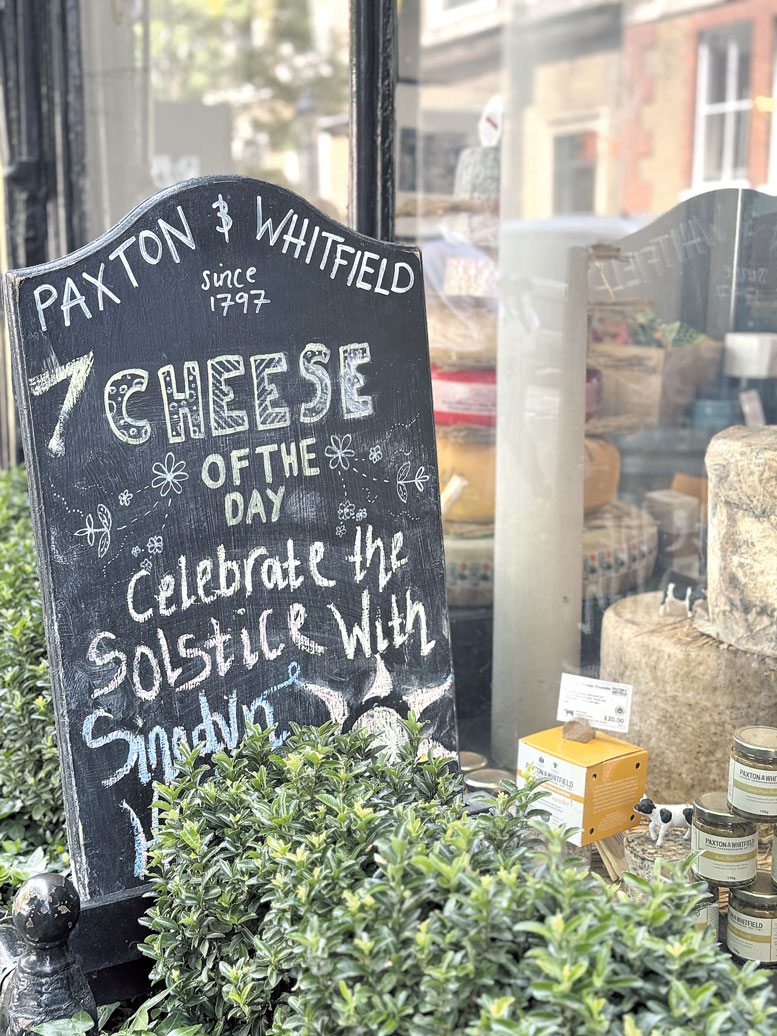 PAXTON & WHITFIELD
since
1797
CHEESE
OF THE
DAY
Celebrate the
Solstice With
PAXTON & WHITFIELD
£20.00
PAXTON & WHITFIELD
PAXTON & WHITFIELD
PAXTON & WHITFIELD